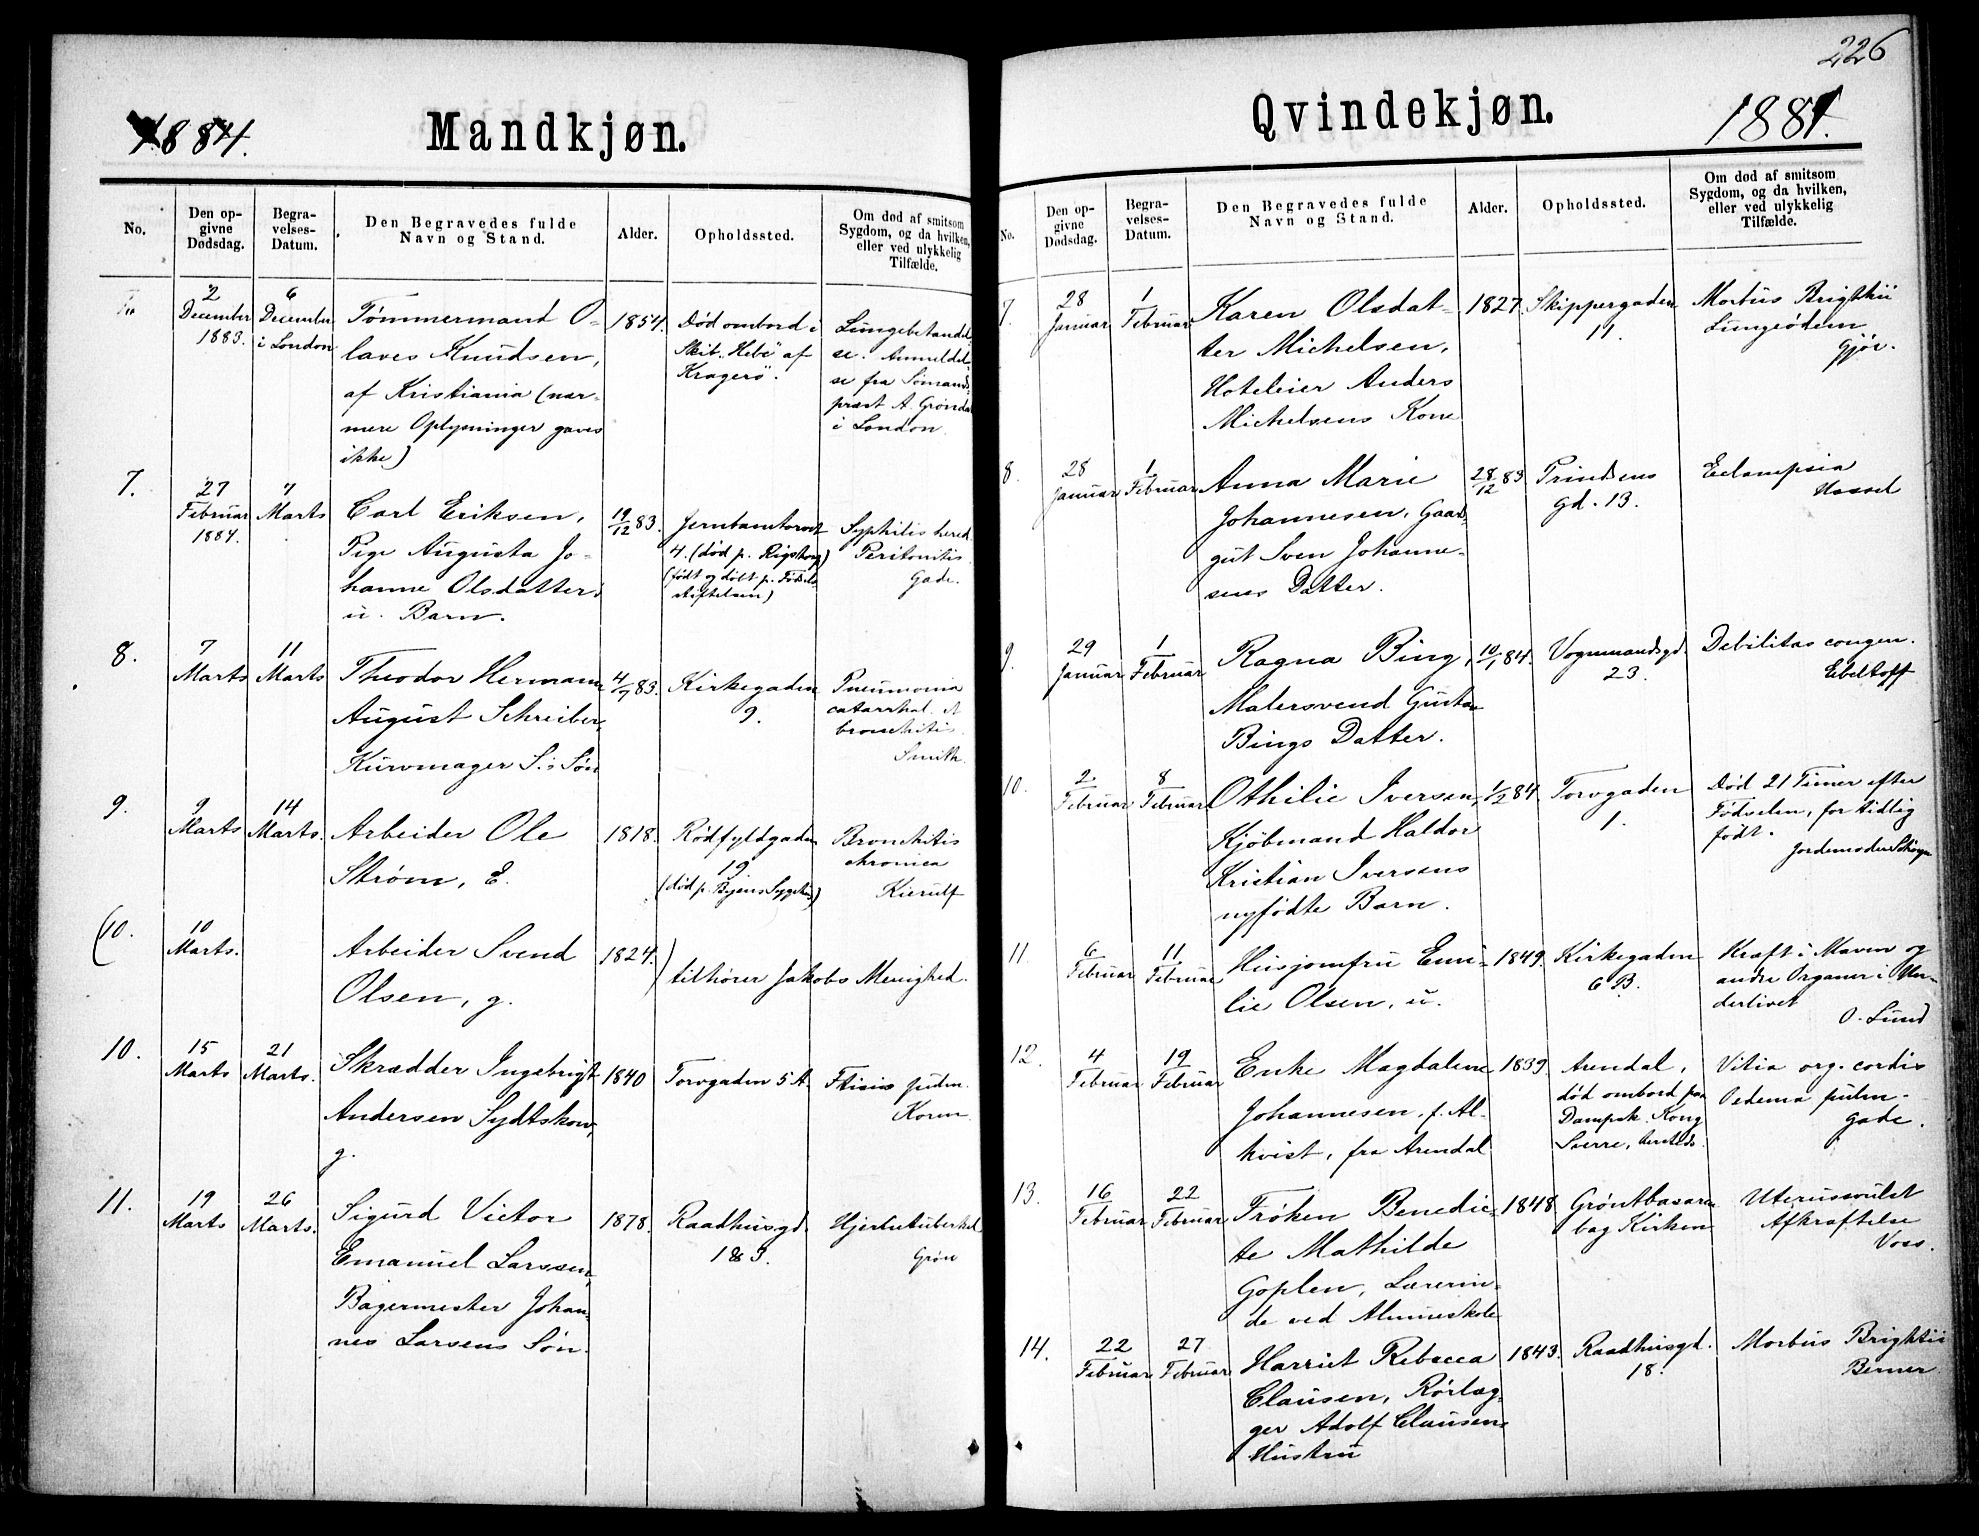 226
1884.
Mandkjøn.
No.
Den op-
givne
Dødsdag.
Begra-
velses-
Datum.
Den Begravedes fulde
Navn og Stand.
Alder.
Opholdssted.
Om død af smitsom
Sygdom, og da hvilken,
eller ved ulykkelig
Tilfælde.
2
December
1883.
6
December
i London
Tømmermand O-
laves Knudsen,
af Kristiania (nær-
mere Oplysninger gaves
ikke)
1854.
Død ombord i
Skib. "Hebe" af
Kragerø.
Lungebetændel-
se. Anmeldel-
se fra Sømands-
præst A. Grøndal
i London.
7.
27
Februar
1884.
7
Marts
Carl Eriksen,
Pige Augusta Jo-
hanne Olsdatters
u. Barn.
19/12 83.
Jernbanetorvet
4. (død p. Rigshosp)
(født og døbt p. Fødsels-
stiftelsen)
Syphilis hered.
Peritonitis.
Gade.
8.
7
Marts
11
Marts
Theodor Hermann
August Schreiber,
Kurvmager S.s Søn
4/7 83.
Kirkegaden
9.
Pneumonia
catarrhal. et
bronchitis.
Smith.
9.
9
Marts
14
Marts.
Arbeider Ole
Strøm, E.
1818.
Rødfyldgaden
19.
(død p. Byens Sygehus)
Bronchitis
chronica
Kierulf
(10.
10
Marts.
Arbeider Svend
Olsen, g.
1824.)
tilhører Jakobs Menighed.
10.
15
Marts
21
Marts.
Skrædder Ingebrigt
Andersen Sydtskow,
g.
1840
Torvgaden 5 A.
Ftisis pulm.
Koren.
11.
19
Marts
26
Marts.
Sigurd Victor
Emanuel Larssen,
Bagermester Johan-
nes Larsens Søn.
1878.
Raadhusgd.
Hjertetuberkel
Grøn
Qvindekjøn.
1884.
No.
Den op-
givne
Dødsdag.
Begra-
velses-
Datum.
Den Begravedes fulde
Navn og Stand.
Alder.
Opholdssted.
Om død af smitsom
Sygdom, og da hvilken,
eller ved ulykkelig
Tilfælde.
7.
28
Januar
1
Februar
Karen Olsdat-
ter Michelsen,
Hoteleier Anders
Michelsens Kone
1827.
Skippergaden
11.
Morbus Brigthii
Lungeødem
Gjør.
8.
28
Januar
1
Februar
Anna Marie
Johannesen, Gaards-
gut Sven Johanne-
sens Datter.
28/12 83
Prindsens
gd. 13.
Eclampsia
Hassel
9.
29
Januar
1
Februar
Ragna Bing,
Malersvend Gustav
Bings Datter.
10/1 84.
Vognmandsgd.
23.
Debilitas congen.
Ebeltoff
10.
2
Februar
8
Februar
Othilie Iversen,
Kjøbmand Haldor
Kristian Iversens
nyfødte Barn.
1/2 84
Torvgaden
1.
Død 21 Timer efter
Fødselen, for tidlig
født.
Jordemoder
11.
6
Februar
11
Februar
Husjomfru Emi-
lie Olsen, u.
1849.
Kirkegaden
6 B.
Kræft i Maven og
andre Organer i Un-
derlivet
O. Lund
12.
4
Februar
19
Februar
Enke Magdalene
Johannesen, f. Al-
kvist, fra Arendal
1839
Arendal,
død ombord paa
Dampsk. Kong
Sverre,
Vitia org. cordis
Oedema pulm.
Gade.
13.
16
Februar
22
Februar
Frøken Benedic-
te Mathilde
Goplen, Lærerin-
de ved Almueskole
1848
Grøntbasaren
bag Kirken
Uterussvulst
Afkræftelse
Voss.
14.
22
Februar
27
Februar
Harriet Rebecca
Clausen, Rørlæg-
ger Adolf Clausens
Hustru
1843.
Raadhusgd.
18.
Morbus Brightii
Berner.